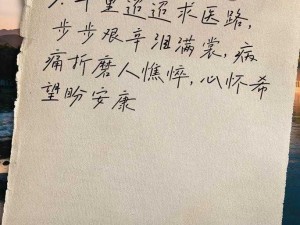 千里迢迢求医路,
步步艰辛泪满裳,病
痛折磨人憔悴,心怀希
望盼安康